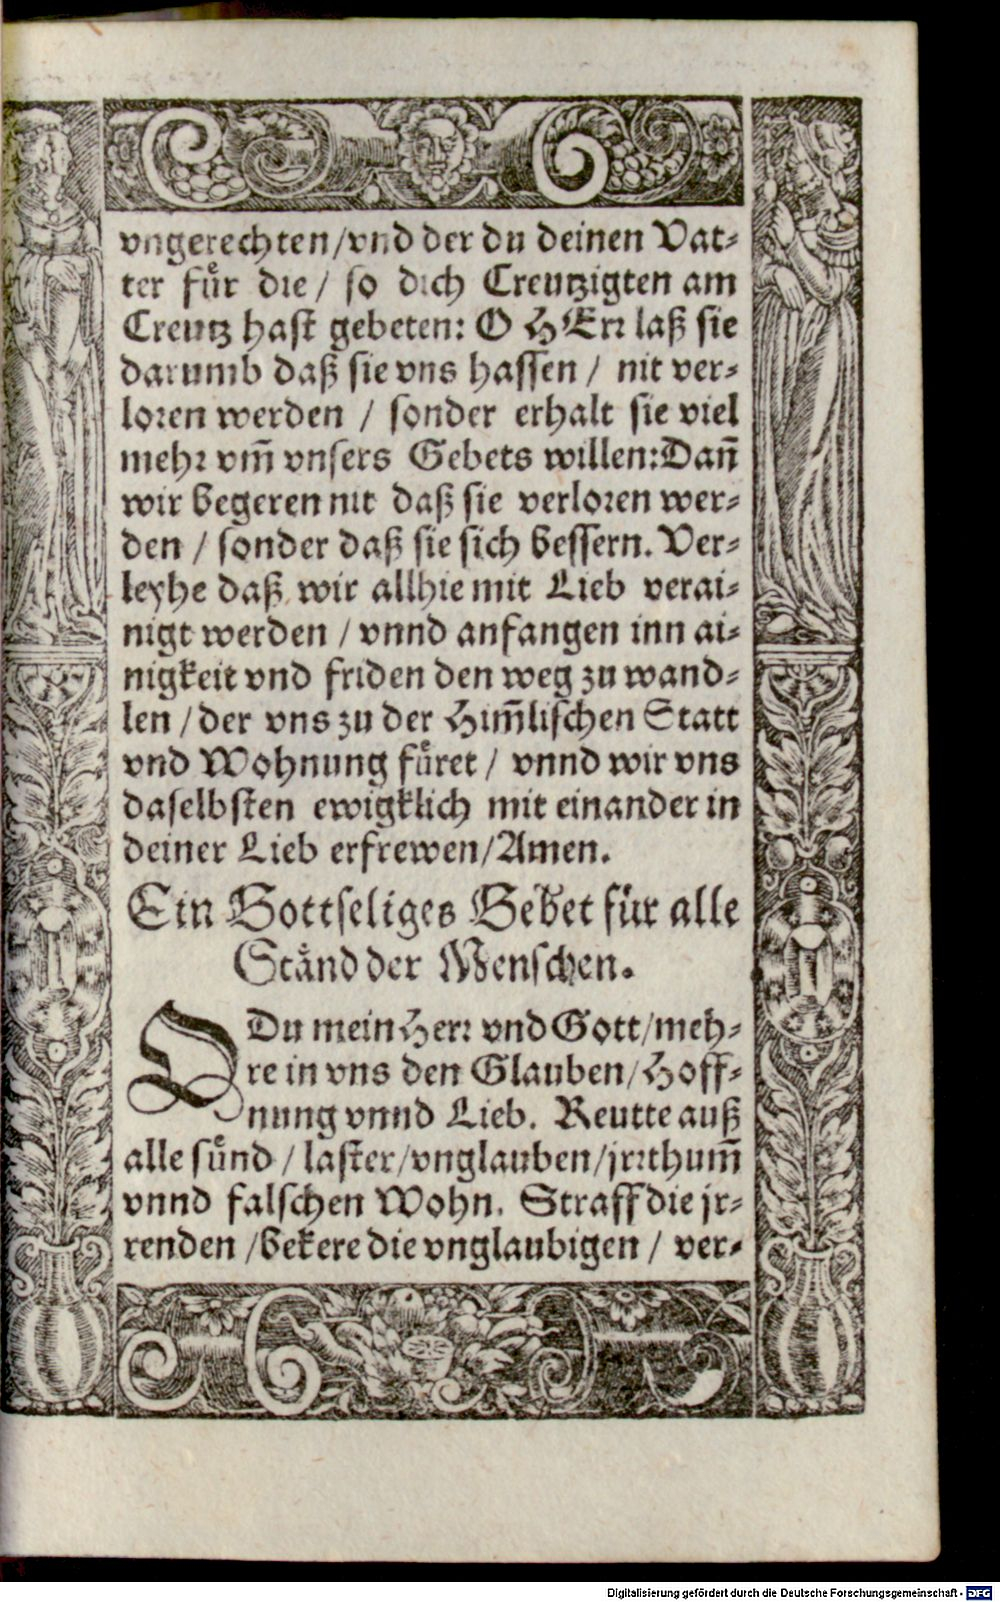 vngerechten/vnd der du deinen Vat⸗
ter fuͤr die / so dich Creutzigten am
Creutz hast gebeten: O HErr laß sie
darumb daß sie vns hassen / nit ver⸗
loren werden / sonder erhalt sie viel
mehr vm̃ vnsers Gebets willen: Dañ
wir begeren nit daß sie verloren wer⸗
den / sonder daß sie sich bessern. Ver⸗
leyhe daß wir allhie mit Lieb verai⸗
nigt werden / vnnd anfangen inn ai⸗
nigkeit vnd friden den weg zu wand⸗
len / der vns zu der Him̃lischen Statt
vnd Wohnung fuͤret / vnnd wir vns
daselbsten ewigklich mit einander in
deiner Lieb erfrewen/Amen.
Ein Gottseliges Gebet für alle
Stånd der Menschen.
O Du mein Herr vnd Gott/meh⸗
re in vns den Glauben/Hoff⸗
nung vnnd Lieb. Reutte auß
alle sünd / laster/vnglauben/jrrthum̃
vnnd falschen Wohn. Straff die jr⸗
renden /bekere die vnglaubigen / ver⸗
Digitalisierung gefördert durch die Deutsche Forschungsgemeinschaft - DFG